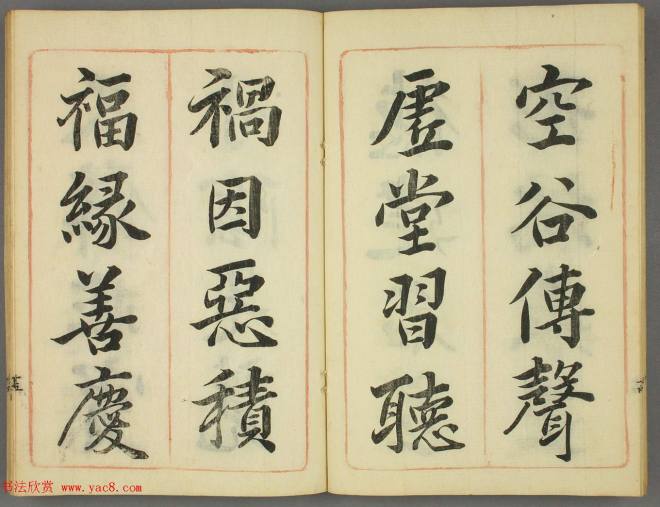 空谷傳聲
虛堂習聽
禍因惡積
福緣善慶
书法欣赏 www.yac8.com